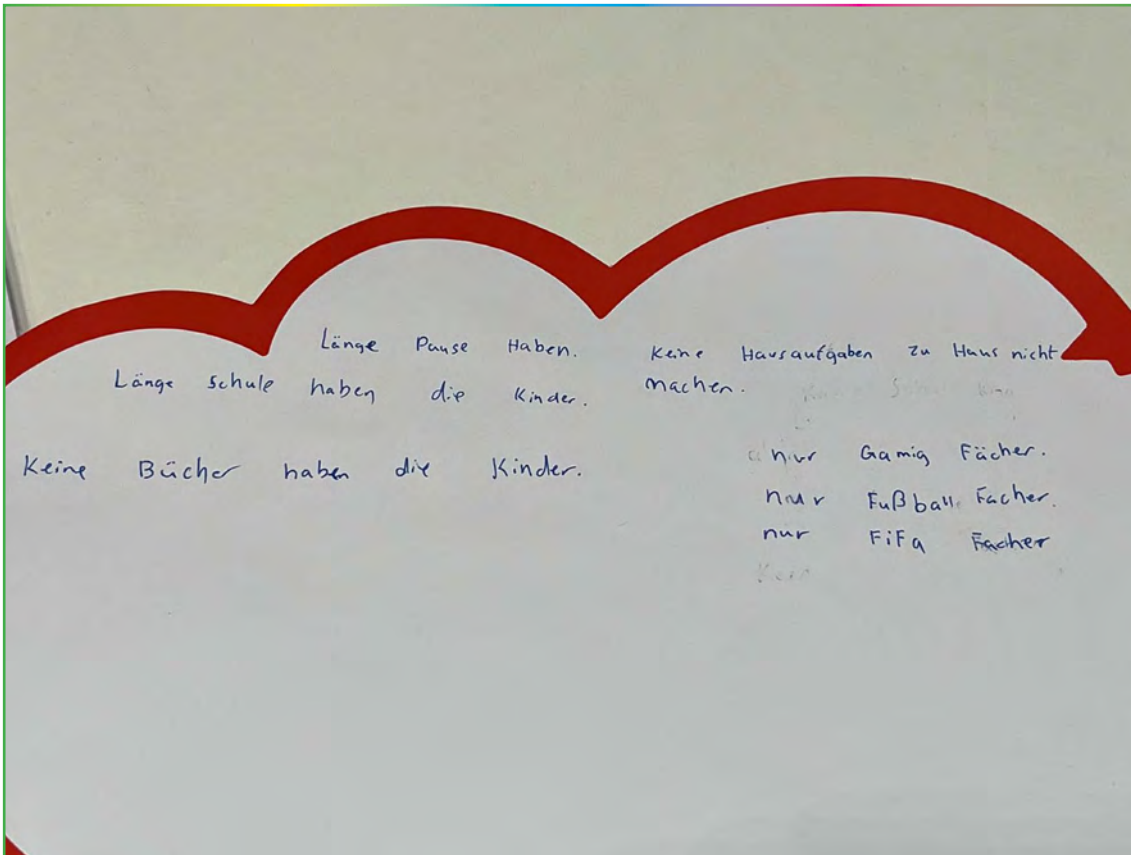 Länge Pause Haben.
Länge Schule haben die Kinder.
Keine Bücher haben die Kinder.
Keine Hausaufgaben zu Haus nicht
machen.
nur Gamig Fächer.
nur Fußball Facher.
nur FiFa Facher